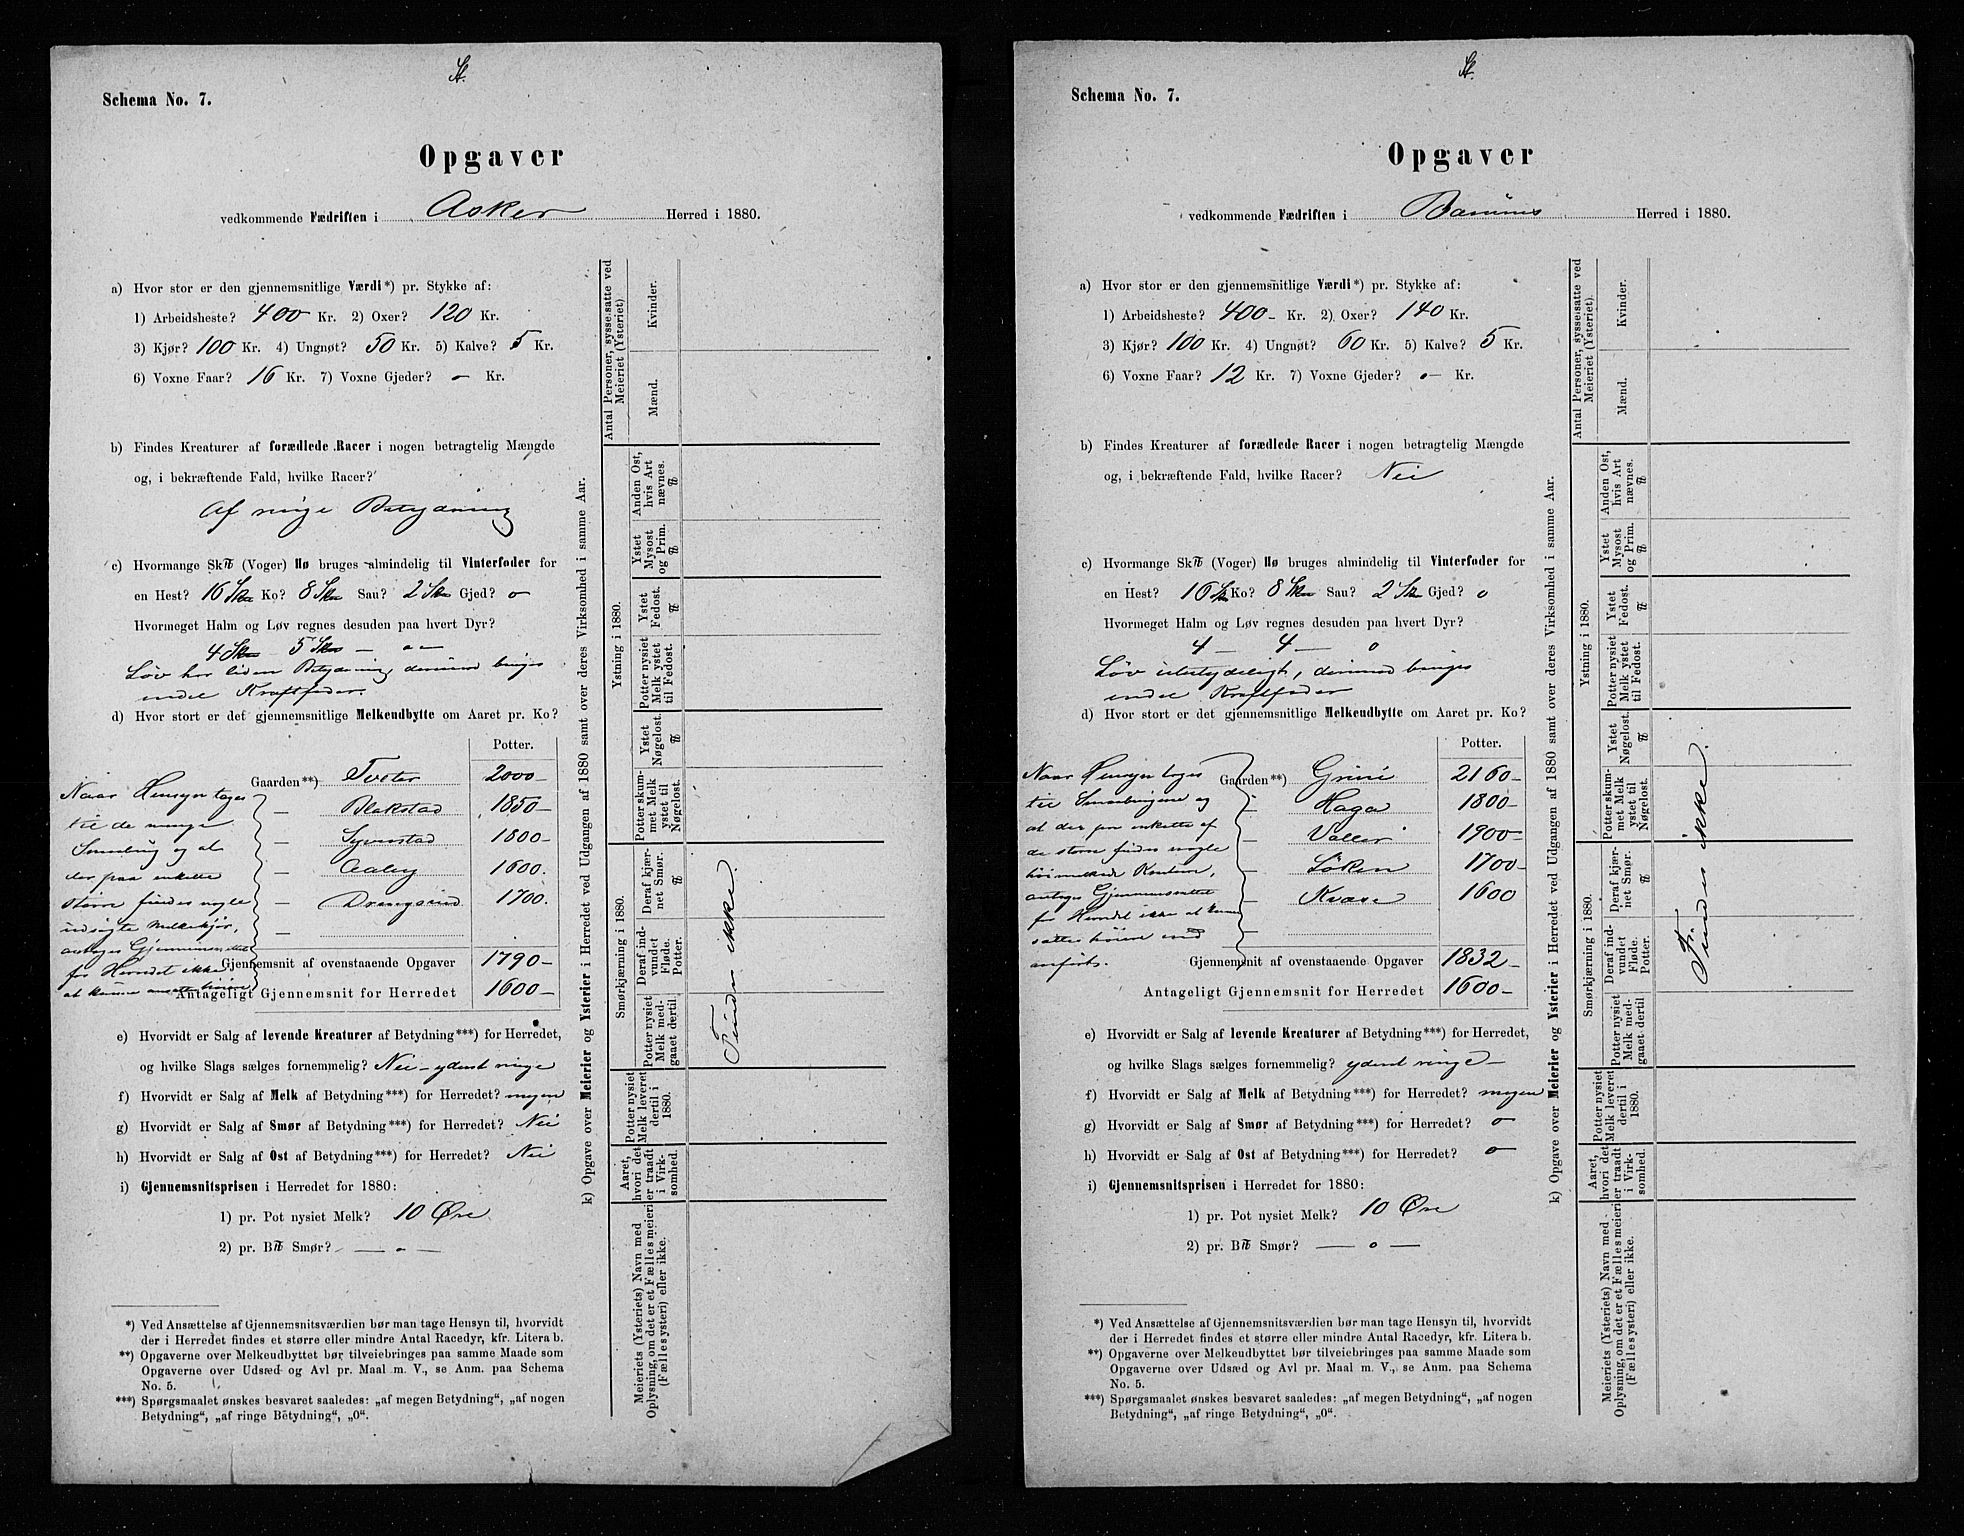 St.
Schema No. 7.
Opgaver
vedkommende Fædriften i Asker Herred i 1880.
a) Hvor stor er den gjennemsnitlige Værdi*) pr. Stykke af:
1) Arbeidsheste? 400 Kr. 2) Oxer? 120 Kr.
3) Kjør? 100 Kr. 4) Ungnøt? 50 Kr. 5) Kalve? 5 Kr.
6) Voxne Faar? 16 Kr. 7) Voxne Gjeder? o— Kr.
b) Findes Kreaturer af forædlede Racer i nogen betragtelig Mængde
og, i bekræftende Fald, hvilke Racer?
Af ringe Betydning
c) Hvormange Sk℔ (Voger) Hø bruges almindelig til Vinterfoder for
en Hest? 16 Ko? 8 Sau? 2 Gjed? o
Hvormeget Halm og Løv regnes desuden paa hvert Dyr?
4 5 — o—
Løv har liden Betydning, derimod bruges
endel Kraftfoder.
d) Hvor stort er det gjennemsnitlige Melkeudbytte om Aaret pr. Ko?
Potter.
Gaarden**) Tveter 2000—
— Blakstad 1850—
— Semstad 1800—
— Aaby 1600.
— Drengsrud 1700.
—
Gjennemsnit af ovenstaaende Opgaver 1790—
Antageligt Gjennemsnit for Herredet 1600—
Naar Hensyn tages
til de mange
Smaabrug og at
der paa enkelte
større findes nogle
udsøgte Melkekjør,
antages Gjennemsnittet
for Herredet ikke
at kunne ansættes høiere
e) Hvorvidt er Salg af levende Kreaturer af Betydning***) for Herredet,
og hvilke Slags sælges fornemmelig? Nei — yderst ringe
f) Hvorvidt er Salg af Melk af Betydning***) for Herredet? megen
g) Hvorvidt er Salg af Smør af Betydning***) for Herredet? Nei
h) Hvorvidt er Salg af Ost af Betydning***) for Herredet? Nei
i) Gjennemsnitsprisen i Herredet for 1880:
1) pr. Pot nysiet Melk? 10 Øre
2) pr. B℔ Smør? — o —
*) Ved Ansættelse af Gjennemsnitsværdien bør man tage Hensyn til, hvorvidt
der i Herredet findes et større eller mindre Antal Racedyr, kfr. Litera b.
**) Opgaverne over Melkeudbyttet bør tilveiebringes paa samme Maade som
Opgaverne over Udsæd og Avl pr. Maal m. V., se Anm. paa Schema
No. 5.
***) Spørgsmaalet ønskes besvaret saaledes: „af megen Betydning“, „af nogen
Betydning“, „af ringe Betydning“, „0“.
k) Opgave over Meierier og Ysterier i Herredet ved Udgangen af 1880 samt over deres Virksomhed i samme Aar.
Meieriets (Ysteriets) Navn med
Oplysning, om det er et Fællesmeieri
(Fællesysteri) eller ikke.
Aaret,
hvori det
er traadt
i Virk-
somhed.
Potter nysiet
Melk leveret
dertil i
1880.
Smørkjærning i 1880.
Potter nysiet
Melk med-
gaaet dertil.
Deraf ind-
vundet
Fløde.
Potter.
Deraf kjær-
net Smør.
℔
Ystning i 1880.
Potter skum-
met Melk
ystet til
Nøgelost.
Ystet
Nøgelost.
℔
Potter nysiet
Melk ystet
til Fedost.
Ystet
Fedost.
℔
Ystet
Mysost
og Prim.
℔
Anden Ost,
hvis Art
nævnes.
℔
Antal Personer, sysselsatte ved
Meieriet (Ysteriet)
Mænd.
Kvinder.
Findes ikke.
St.
Schema No. 7.
Opgaver
vedkommende Fædriften i Bærums Herred i 1880.
a) Hvor stor er den gjennemsnitlige Værdi*) pr. Stykke af:
1) Arbeidsheste? 400— Kr. 2) Oxer? 140 Kr.
3) Kjør? 100 Kr. 4) Ungnøt? 60 Kr. 5) Kalve? 5 Kr.
6) Voxne Faar? 12 Kr. 7) Voxne Gjeder? o— Kr.
b) Findes Kreaturer af forædlede Racer i nogen betragtelig Mængde
og, i bekræftende Fald, hvilke Racer? Nei
c) Hvormange Sk℔ (Voger) Hø bruges almindelig til Vinterfoder for
en Hest? 16 Ko? 8 Sau? 2 Gjed? o
Hvormeget Halm og Løv regnes desuden paa hvert Dyr?
4 — 4 — o
Løv ubetydeligt, derimod bruges
endel Kraftfoder
d) Hvor stort er det gjennemsnitlige Melkeudbytte om Aaret pr. Ko?
Potter.
Gaarden**) Grini 2160—
— Haga 1800—
— Valler 1900—
— Løken 1700—
— Kvære 1600
—
Gjennemsnit af ovenstaaende Opgaver 1832—
Antageligt Gjennemsnit for Herredet 1600—
Naar Hensyn tages
til Smaabrugene og
at der paa enkelte af
de større findes nogle
antages Gjennemsnittet
for Herredet ikke at kunne
sættes høiere end
anførts.
e) Hvorvidt er Salg af levende Kreaturer af Betydning***) for Herredet,
og hvilke Slags sælges fornemmelig? yderst ringe —
f) Hvorvidt er Salg af Melk af Betydning***) for Herredet? megen
g) Hvorvidt er Salg af Smør af Betydning***) for Herredet? o
h) Hvorvidt er Salg af Ost af Betydning***) for Herredet? o
i) Gjennemsnitsprisen i Herredet for 1880:
1) pr. Pot nysiet Melk? 10 Øre
2) pr. B℔ Smør? — o —
*) Ved Ansættelse af Gjennemsnitsværdien bør man tage Hensyn til, hvorvidt
der i Herredet findes et større eller mindre Antal Racedyr, kfr. Litera b.
**) Opgaverne over Melkeudbyttet bør tilveiebringes paa samme Maade som
Opgaverne over Udsæd og Avl pr. Maal m. V., se Anm. paa Schema
No. 5.
***) Spørgsmaalet ønskes besvaret saaledes: „af megen Betydning“, „af nogen
Betydning“, „af ringe Betydning“, „0“.
k) Opgave over Meierier og Ysterier i Herredet ved Udgangen af 1880 samt over deres Virksomhed i samme Aar.
Meieriets (Ysteriets) Navn med
Oplysning, om det er et Fællesmeieri
(Fællesysteri) eller ikke.
Aaret,
hvori det
er traadt
i Virk-
somhed.
Potter nysiet
Melk leveret
dertil i
1880.
Smørkjærning i 1880.
Potter nysiet
Melk med-
gaaet dertil
Deraf ind-
vundet
Fløde.
Potter.
Deraf kjær-
net Smør.
℔
Ystning i 1880.
Potter skum-
met Melk
ystet til
Nøgelost.
Ystet
Nøgelost.
℔
Potter nysiet
Melk ystet
til Fedost.
Ystet
Fedost.
℔
Ystet
Mysost
og Prim.
℔
Anden Ost,
hvis Art
nævnes.
℔
Antal Personer, sysselsatte ved
Meieriet (Ysteriet)
Mænd.
Kvinder.
Findes ikke.